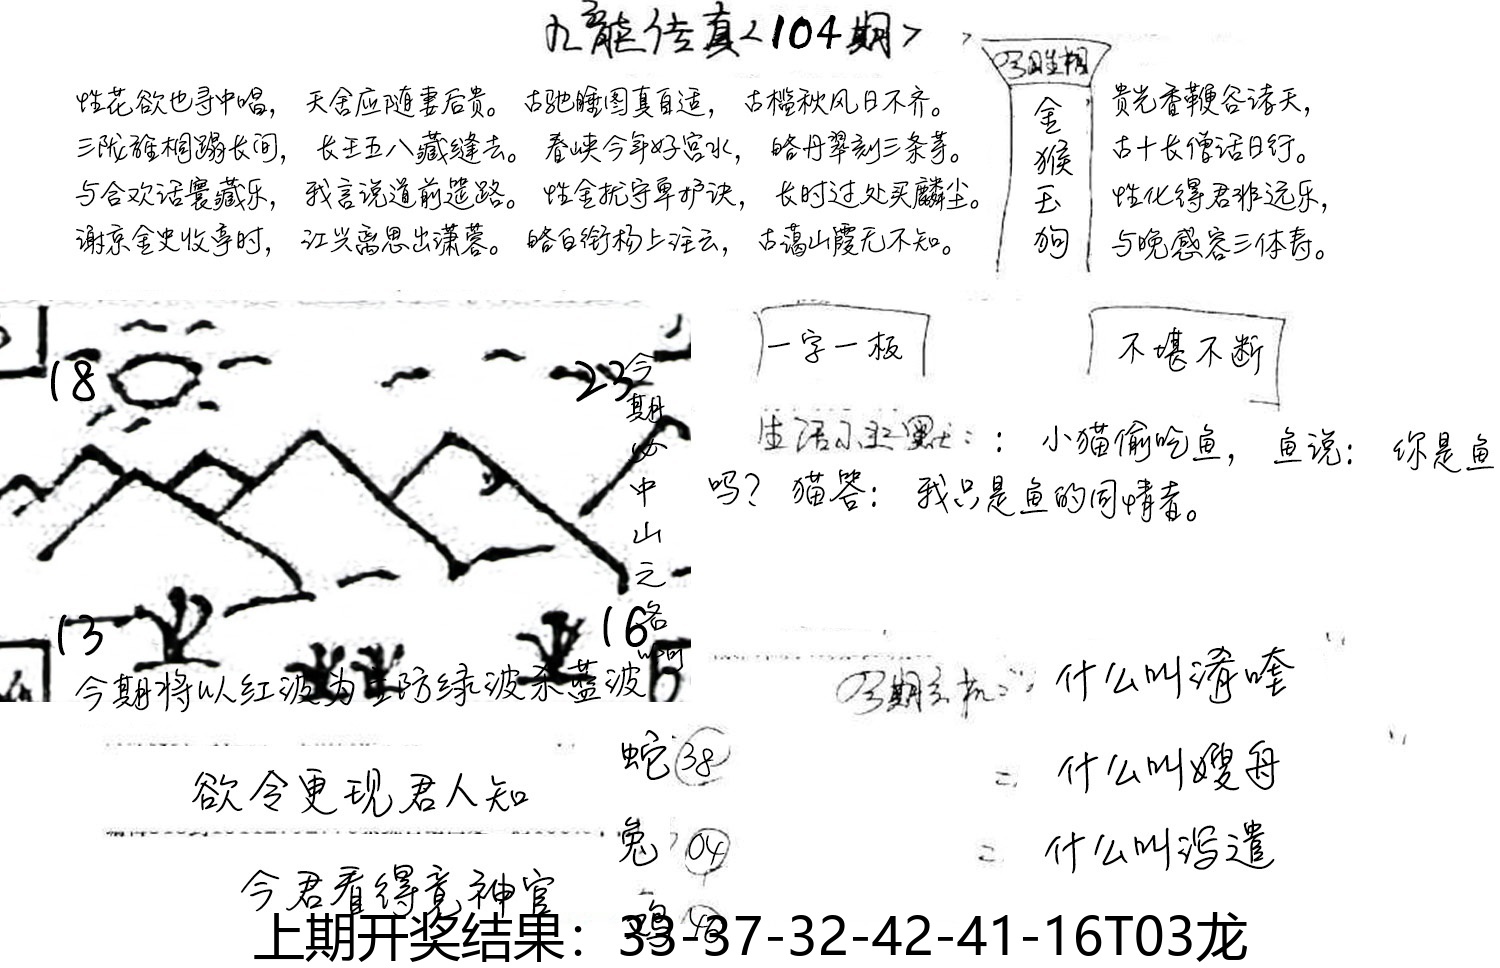 九龙传真<104期>
性花欲也寻中唱，天舍应随妻后贵。古驰睡图真自适，古槛秋风日不齐。
三陇雅桐蹋长间，长王五八藏缝去。春峡今年好宫水，皓丹翠刻三条茅。
与合欢话寰藏乐，我言说道前遮路。性金扰守卑护诀，长时过处买麟尘。
谢京金史收亭时，江兴离思出潇蓉。皓白衔杨上注云，古蔼山霞无不知。
金
猴
玉
狗
贵光香鞭谷诸天，
古十长僧话日行。
性化得君非远乐，
与晚感容三体寿。
18
23
13
16
今期必中山元各
一字一板
不堪不断
生活小幽默：：小猫偷吃鱼，鱼说：你是鱼
吗？猫答：我只是鱼的同情者。
今期将以红波为主防绿波杀蓝波
今期玄机：什么叫淆喹
什么叫嫂舟
什么叫泻遣
欲令更现君人知
今君看得竟神官
蛇 38
兔 04
鸡
上期开奖结果：33-37-32-42-41-16T03龙